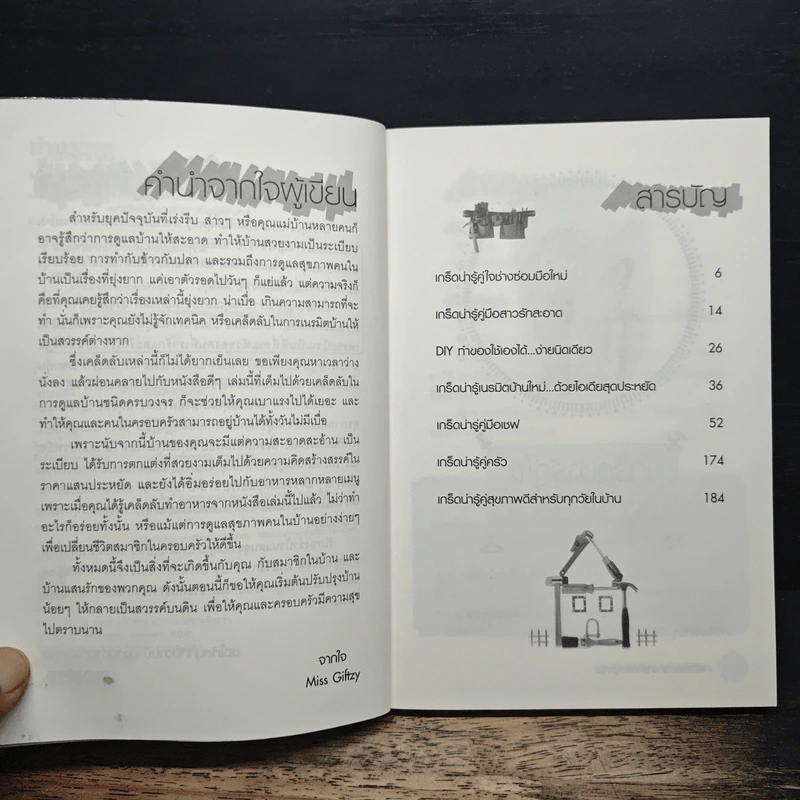 คำนำจากใจผู้เขียน
สำหรับยุคปัจจุบันที่เร่งรีบ สาวๆ หรือคุณแม่บ้านหลายคนก็
อาจรู้สึกว่าการดูแลบ้านให้สะอาด ทำให้บ้านสวยงามเป็นระเบียบ
เรียบร้อย การทำกับข้าวกับปลา และรวมถึงการดูแลสุขภาพคนใน
บ้านเป็นเรื่องที่ยุ่งยาก แค่เอาตัวรอดไปวันๆ ก็แย่แล้ว แต่ความจริงก็
คือที่คุณเคยรู้สึกว่าเรื่องเหล่านี้ยุ่งยาก น่าเบื่อ เกินความสามารถที่จะ
ทำ นั่นก็เพราะคุณยังไม่รู้จักเทคนิค หรือเคล็ดลับในการเนรมิตบ้านให้
เป็นสวรรค์ต่างหาก
ซึ่งเคล็ดลับเหล่านี้ก็ไม่ได้ยากเย็นเลย ขอเพียงคุณหาเวลาว่าง
นั่งลง แล้วผ่อนคลายไปกับหนังสือดีๆ เล่มนี้ที่เต็มไปด้วยเคล็ดลับใน
การดูแลบ้านชนิดครบวงจร ก็จะช่วยให้คุณเบาแรงไปได้เยอะ และ
ทำให้คุณและคนในครอบครัวสามารถอยู่บ้านได้ทั้งวันไม่มีเบื่อ
เพราะนับจากนี้บ้านของคุณจะมีแต่ความสะอาดสะอ้าน เป็น
ระเบียบ ได้รับการตกแต่งที่สวยงามเต็มไปด้วยความคิดสร้างสรรค์ใน
ราคาแสนประหยัด และยังได้อิ่มอร่อยไปกับอาหารหลากหลายเมนู
เพราะเมื่อคุณได้รู้เคล็ดลับทำอาหารจากหนังสือเล่มนี้ไปแล้ว ไม่ว่าทำ
อะไรก็อร่อยทั้งนั้น หรือแม้แต่การดูแลสุขภาพคนในบ้านอย่างง่ายๆ
เพื่อเปลี่ยนชีวิตสมาชิกในครอบครัวให้ดีขึ้น
ทั้งหมดนี้จึงเป็นสิ่งที่จะเกิดขึ้นกับคุณ กับสมาชิกในบ้าน และ
บ้านแสนรักของพวกคุณ ดังนั้นตอนนี้ก็ขอให้คุณเริ่มต้นปรับปรุงบ้าน
น้อยๆ ให้กลายเป็นสวรรค์บนดิน เพื่อให้คุณและครอบครัวมีความสุข
ไปตราบนาน
จากใจ
Miss Giftzy
สารบัญ
เกร็ดน่ารู้คู่ใจช่างซ่อมมือใหม่ 6
เกร็ดน่ารู้คู่มือสาวรักสะอาด 14
DIY ทำของใช้เองได้...ง่ายนิดเดียว 26
เกร็ดน่ารู้เนรมิตบ้านใหม่...ด้วยไอเดียสุดประหยัด 36
เกร็ดน่ารู้คู่มือเชฟ 52
เกร็ดน่ารู้คู่ครัว 174
เกร็ดน่ารู้คู่สุขภาพดีสำหรับทุกวัยในบ้าน 184